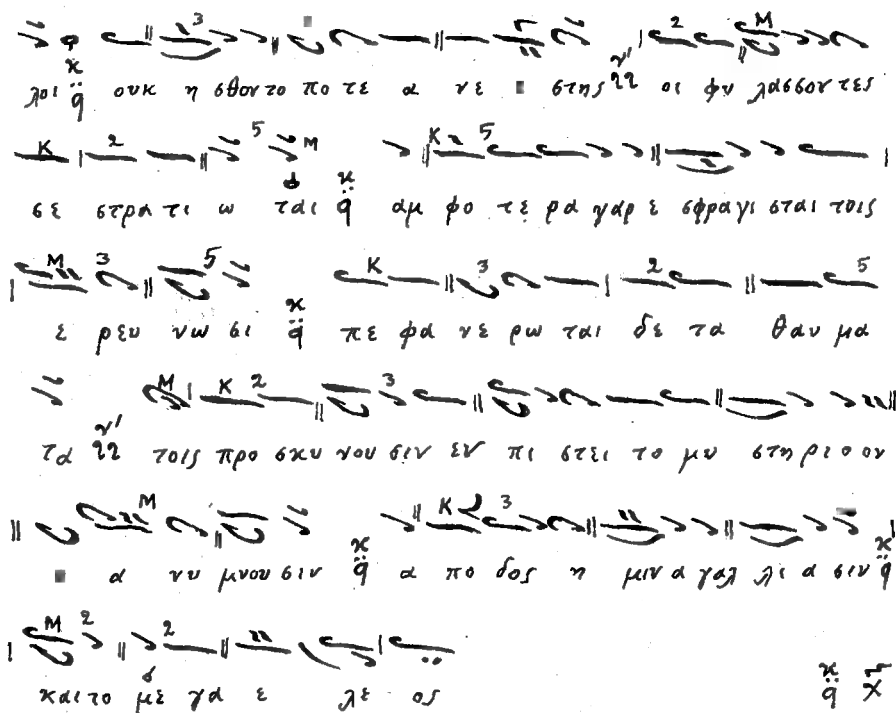 λοι ουκ η σθοντο πο τε α νε στης οι φυ λασσοντες
σε στρα τι ω ται αμ φο τε ρα γαρ ε σφραγι σται τοις
ε ρευ νω σι πε φα νε ρω ται δε τα θαυ μα
τα τοις προ σκυ νου σιν εν πι στει το μυ στηρι ο ον
α νυ μνου σιν α πο δος η μιν α γαλ λι α σιν
και το με γα ε λε ος